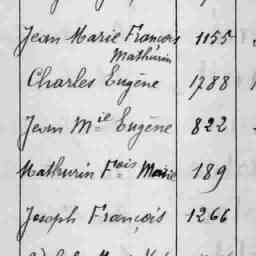 Jean Marie François 1155
Mathurin
Charles Eugène 1788
Jean M.ie Eugène 822
Mathurin F.ois Marie 189
Joseph François 1266